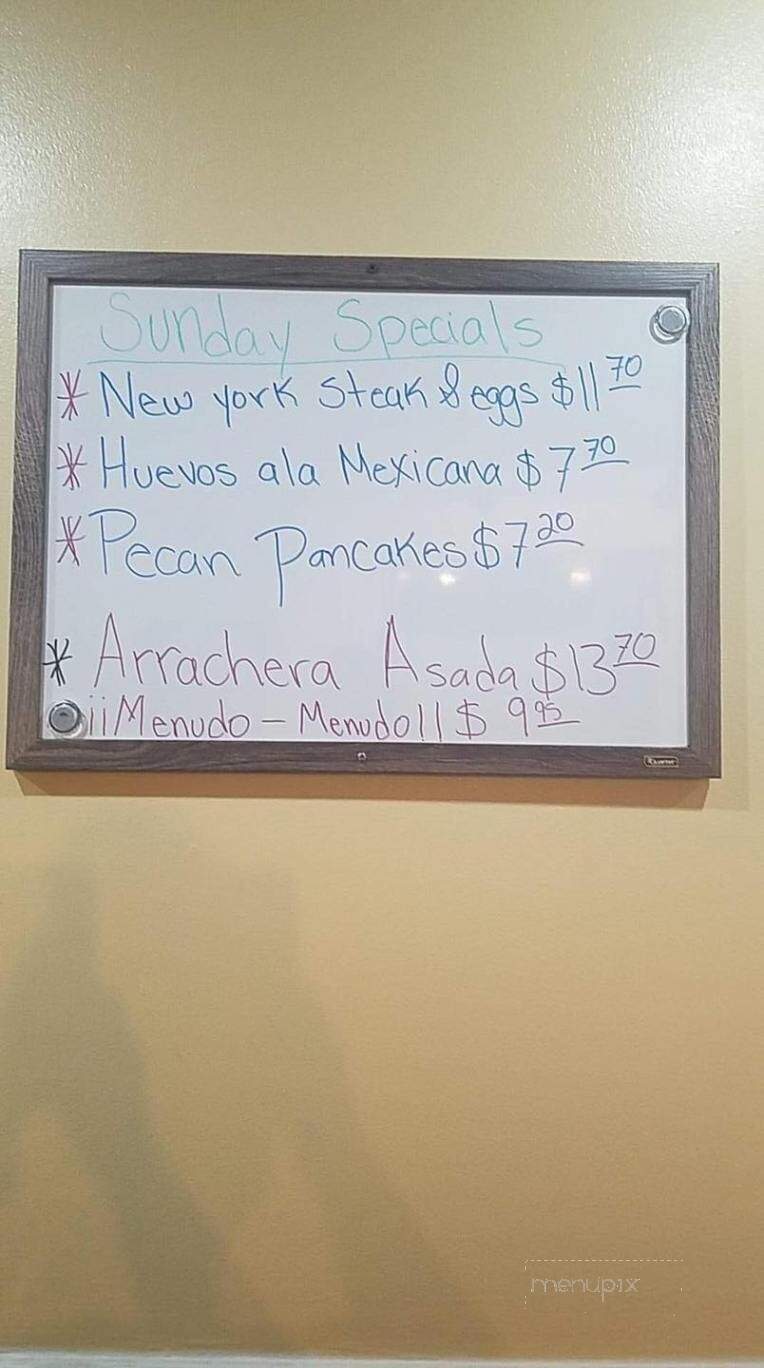 Sunday Specials
* New York Steak & eggs $11 70
* Huevos ala Mexicana $7 70
* Pecan Pancakes $7 20
* Arrachera Asada $13 70
¡¡Menudo - Menudo!! $ 9 95
menupix